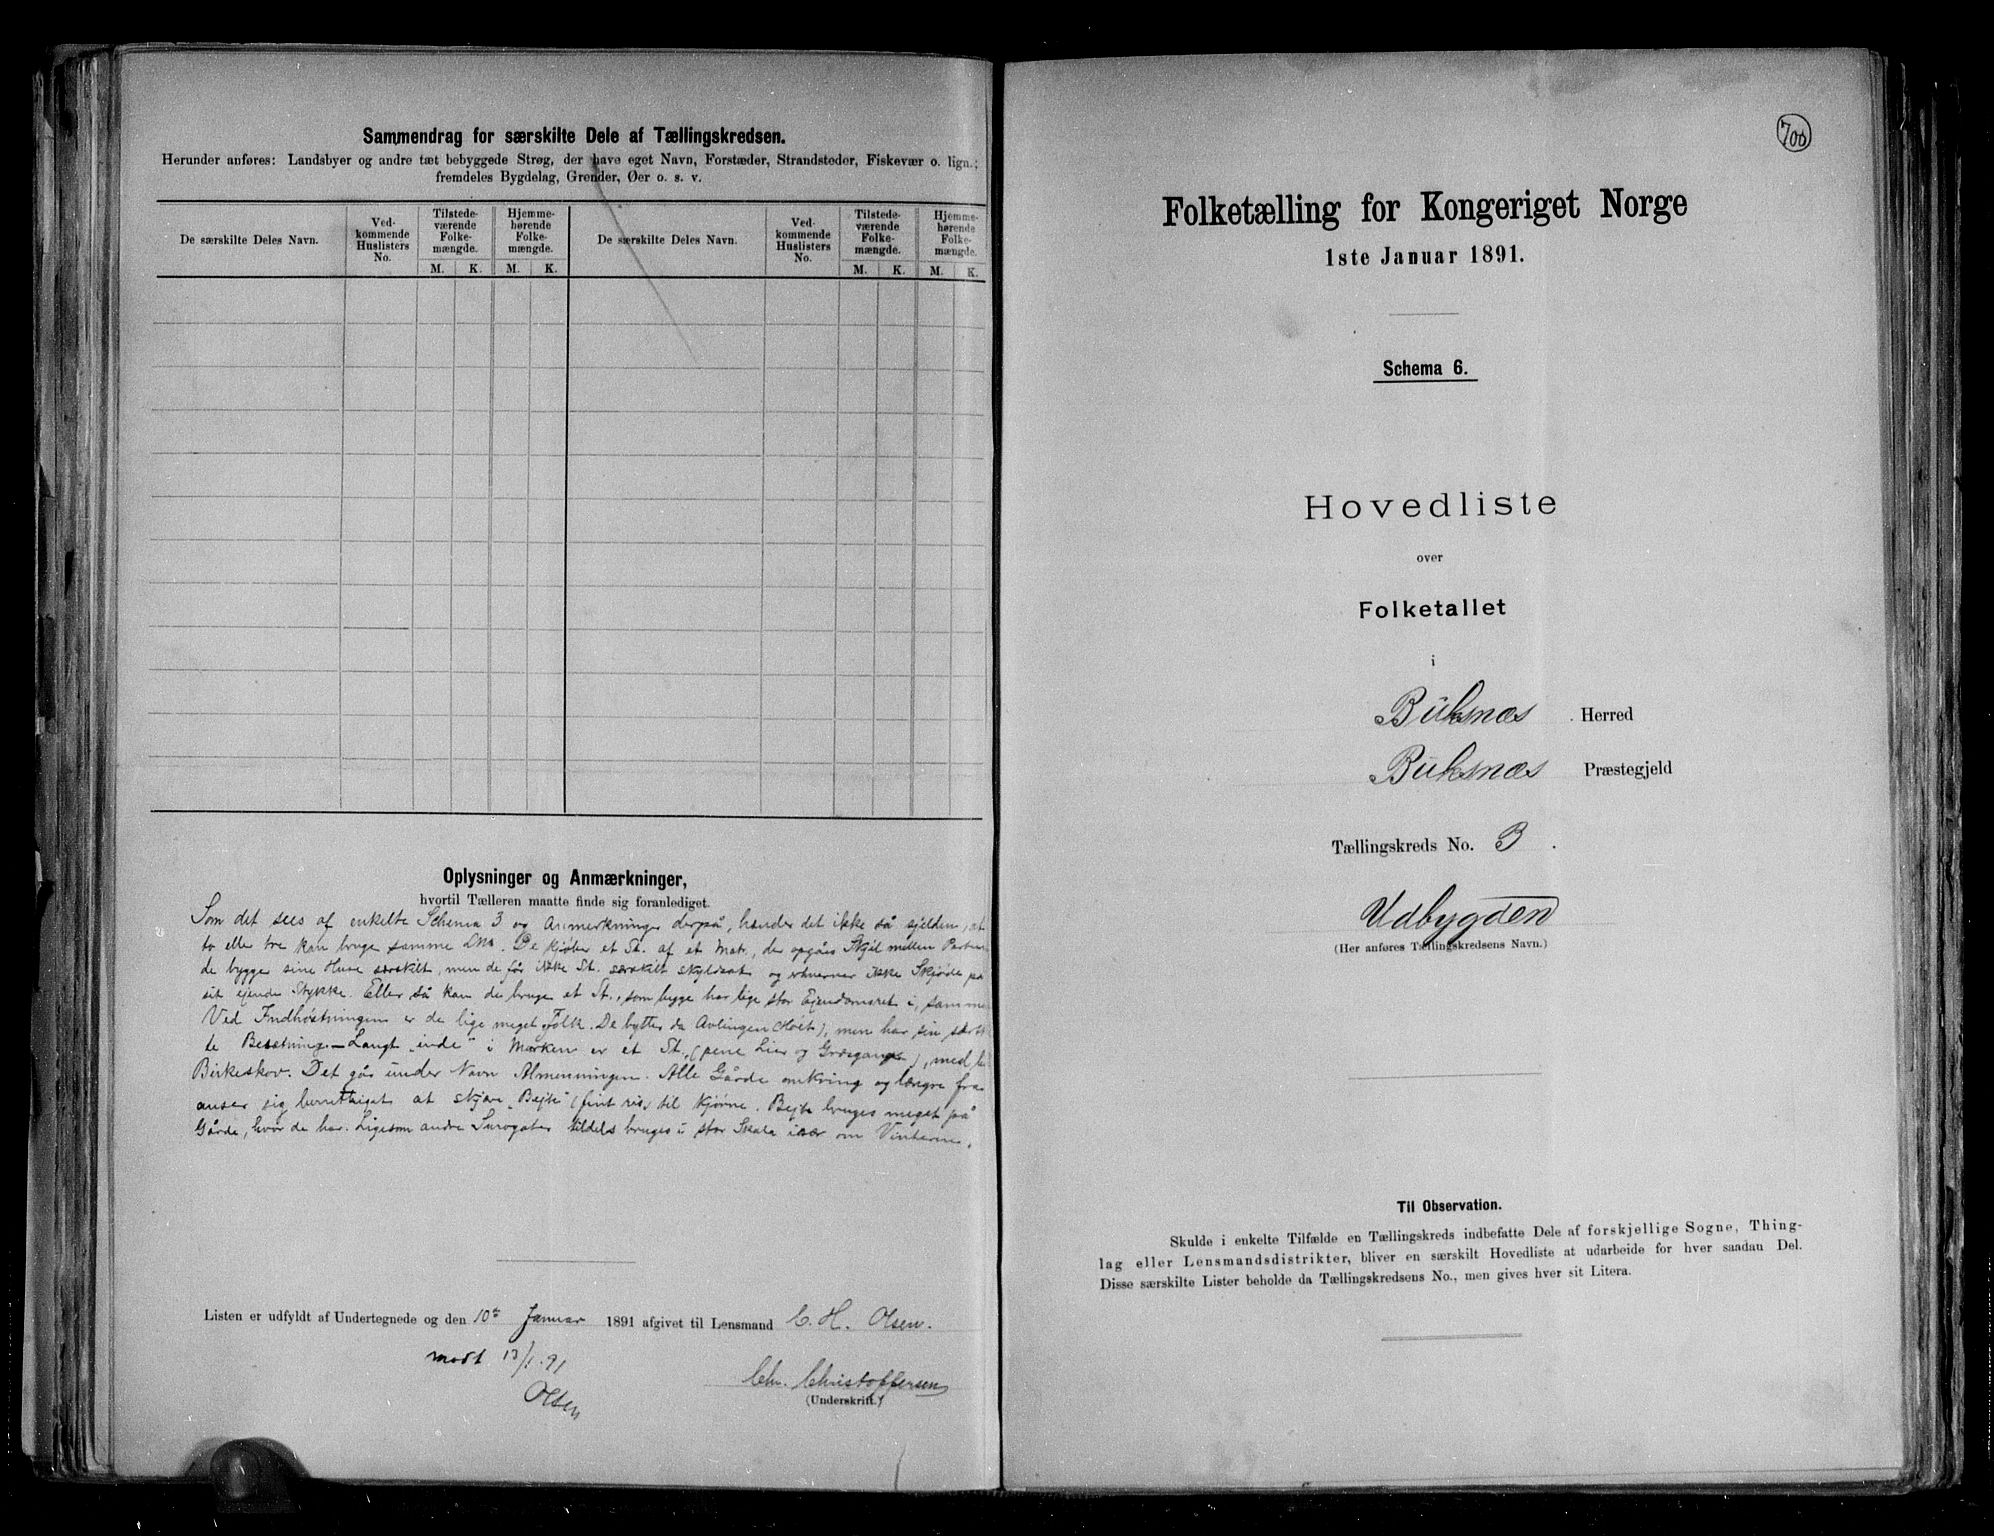 Sammendrag for særskilte Dele af Tællingskredsen.
Herunder anføres: Landsbyer og andre tæt bebyggede Strøg, der have eget Navn, Forstæder, Strandsteder, Fiskevær o. lign.;
fremdeles Bygdelag, Grender, Øer o. s. v.
De særskilte Deles Navn.
Ved-
kommende
Huslisters
No.
Tilstede-
værende
Folke-
mængde.
Hjemme-
hørende
Folke-
mængde.
De særskilte Deles Navn.
Ved-
kommende
Huslisters
No.
Tilstede-
værende
Folke-
mængde.
Hjemme-
hørende
Folke-
mængde.
M. K. M. K. M. K. M. K.
Oplysninger og Anmærkninger,
hvortil Tælleren maatte finde sig foranlediget.
Som det sees af enkelte Schema 3 og Anmerkninger derpå, hænder det ikke så sjelden, at
to eller tre kan bruge samme No. De kjøber et St. af et Matr., der opgås Skjel mellem
de bygger sine Huse særskilt, men de får ikke St. særskilt skyldsat og ikke Skjøde på
sit ejende Stykke. Eller så kan de bruge et St., som begge har lige stor Ejendomsret i, sammen
Ved Indhøstningen er de lige meget Folk. De bytter da Avlingen (Høet), men har sin
de Besætning. – Langt „inde" i Marken er et St. (pene Lier og Græsgange), med
Birkeskov. Det går under Navn Almenningen. Alle Gårde omkring og længre fra
anser sig berettiget at skjære „Bejte" (fint ris) til Kjørne. Bejte bruges meget på
Gårde, hvor de har. Ligesom andre Surogater tildels bruges i stor Skala især om Vinteren.
Listen er udfyldt af Undertegnede og den 10de Januar 1891 afgivet til Lensmand C. H. Olsen.
modt 13/1.91
Olsen
Chr. Christoffersen
(Underskrift.)
700
Folketælling for Kongeriget Norge
1ste Januar 1891.
Schema 6.
Hovedliste
over
Folketallet
i
Buksnæs Herred
Buksnæs Præstegjeld
Tællingskreds No. 3.
Udbygden
(Her anføres Tællingskredsens Navn.)
Til Observation.
Skulde i enkelte Tilfælde en Tællingskreds indbefatte Dele af forskjellige Sogne, Thing-
lag eller Lensmandsdistrikter, bliver en særskilt Hovedliste at udarbeide for hver saadan Del.
Disse særskilte Lister beholde da Tællingskredsens No., men gives hver sit Litera.